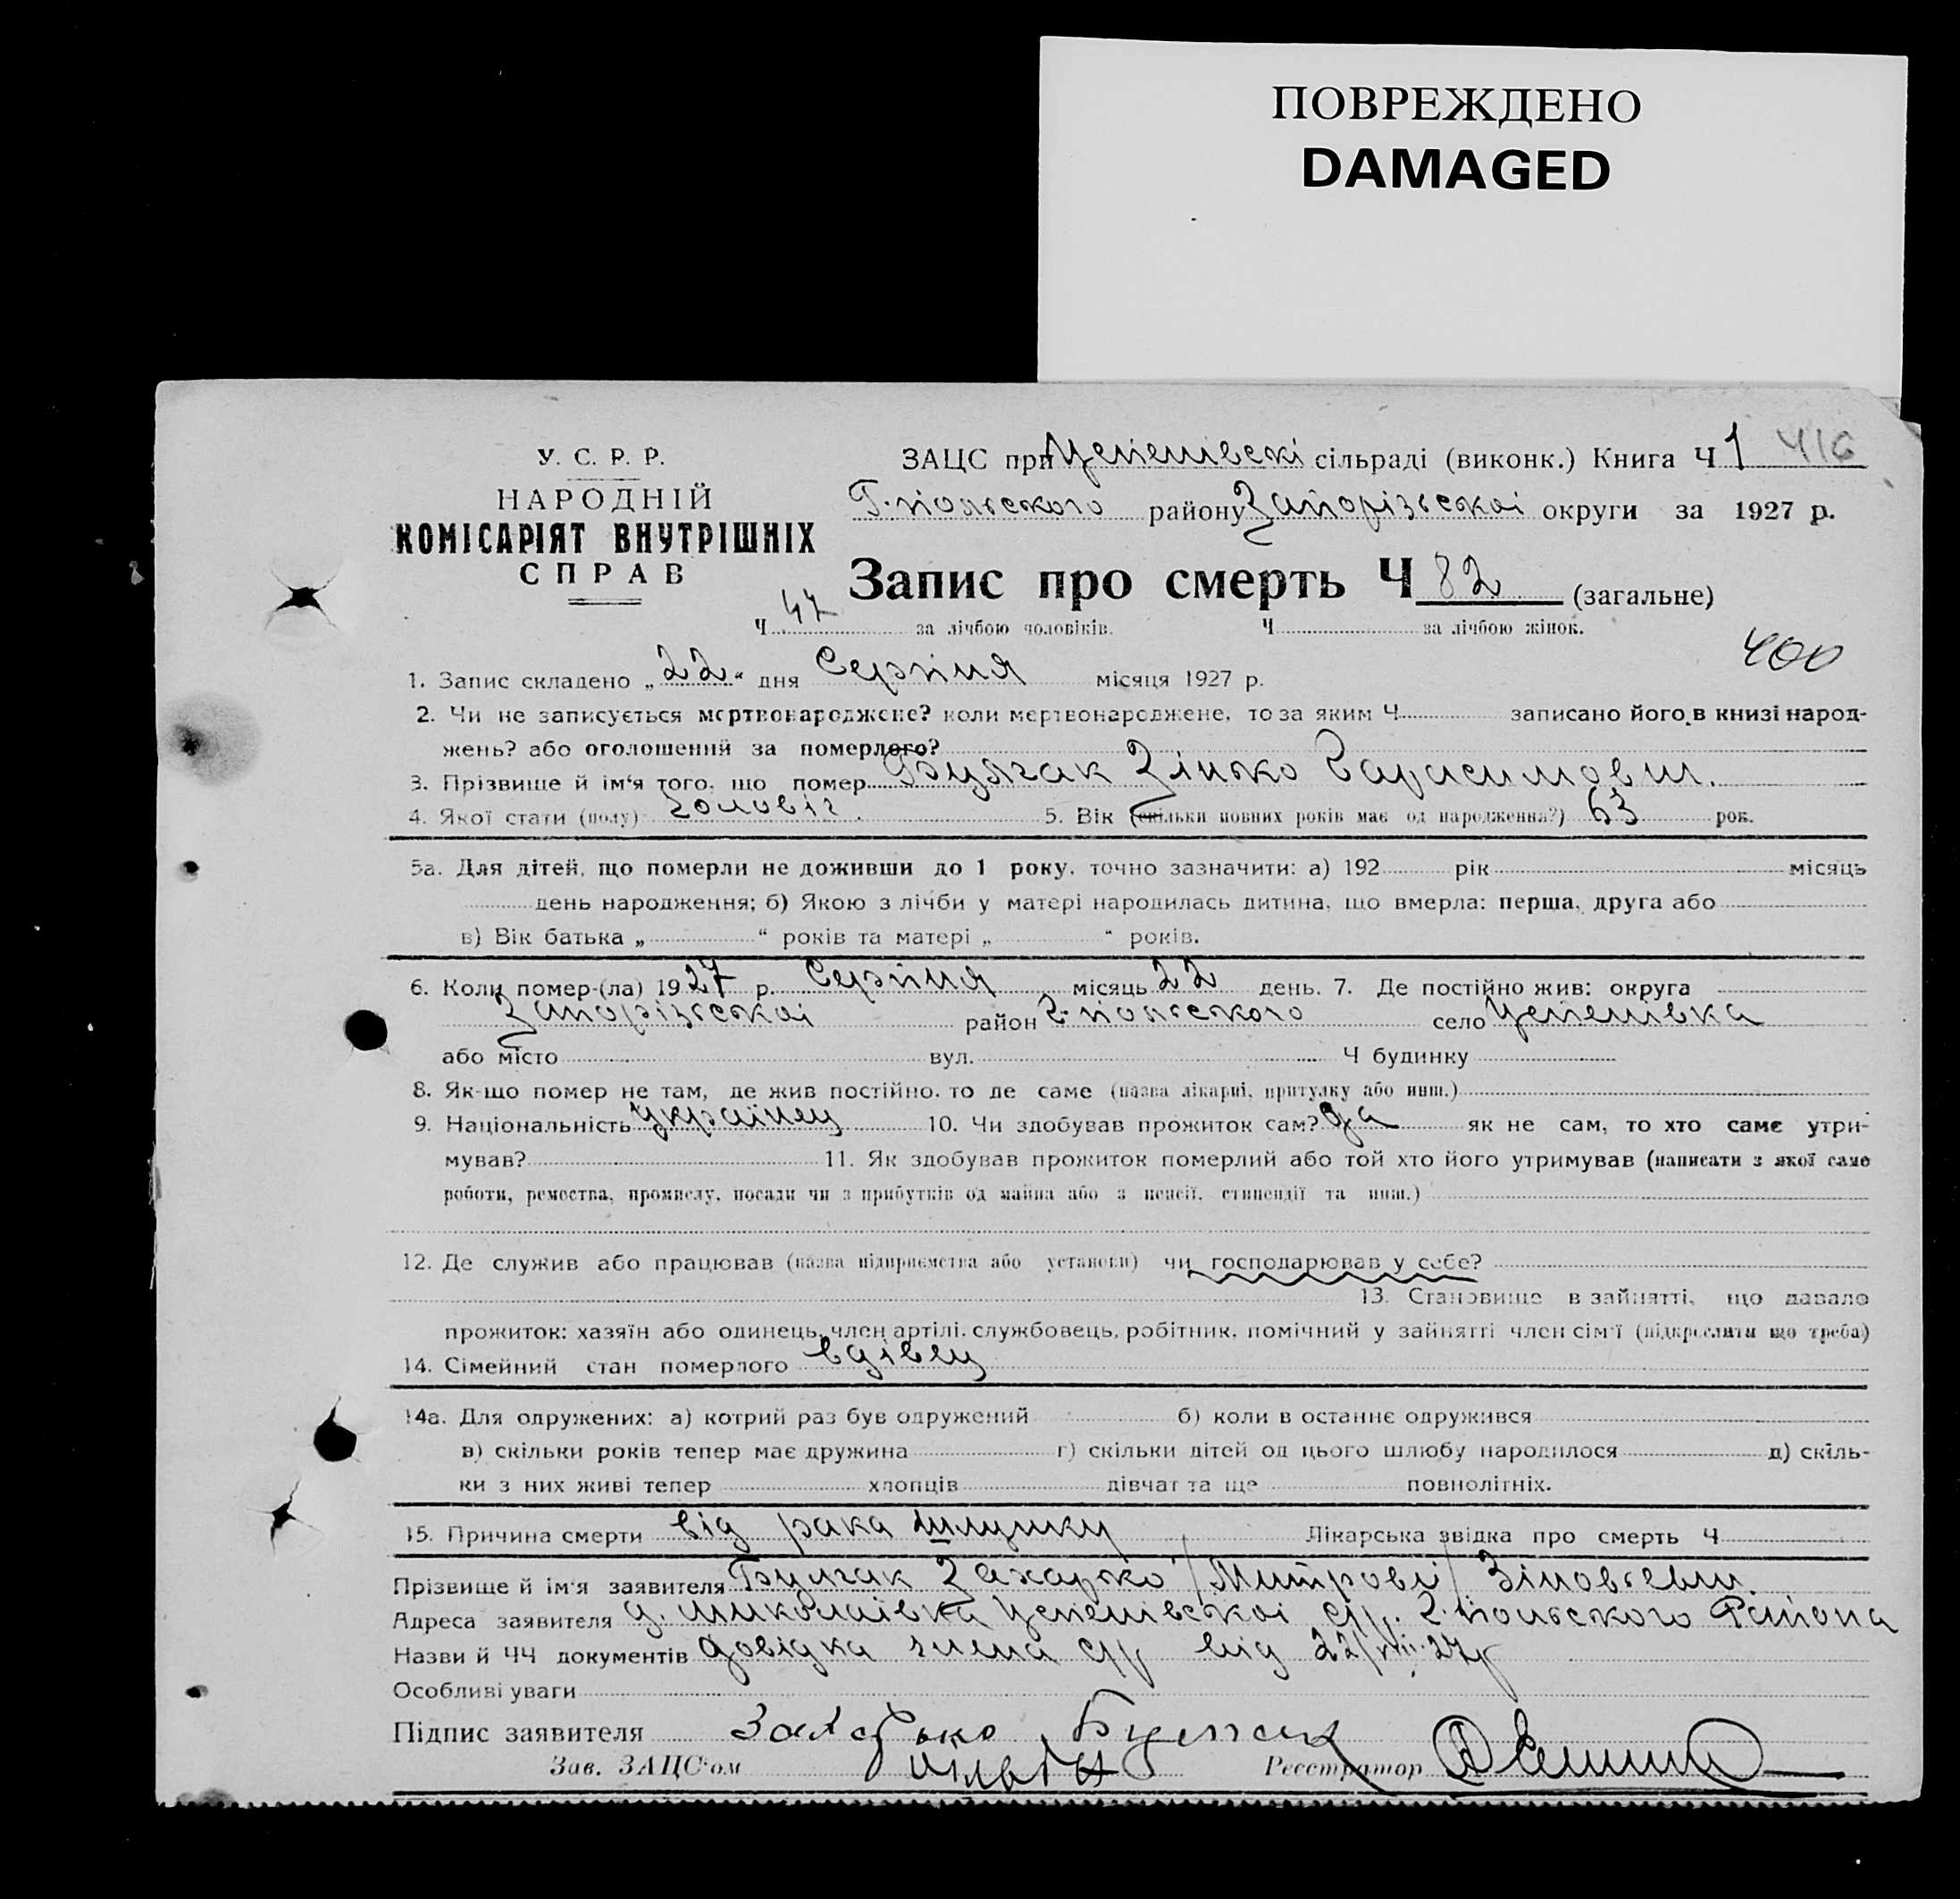 ПОВРЕЖДЕНО
DAMAGED
У. С. Р. Р.
НАРОДНІЙ
КОМІСАРІЯТ ВНУТРІШНІХ
СПРАВ
ЗАЦС при Успенівскі сільраді (виконк.) Книга Ч 1 416
Г.польского району Запорізьскоі округи за 1927 р.
Запис про смерть Ч 82 (загальне)
Ч 47 за лічбою чоловіків. Ч за лічбою жінок.
400
1. Запис складено „22“ дня Серпня місяця 1927 р.
2. Чи не записується мертвонароджене? коли мертвонароджене, то за яким Ч записано його в книзі народ-
жень? або оголошений за померлого?
3. Прізвище й ім‘я того, що помер Булгак Зінько Гарасимович.
4. Якої стати (полу) чоловіч. 5. Вік (скільки повних років має од народження?) 63 рок.
5а. Для дітей, що померли не доживши до 1 року, точно зазначити: а) 192 рік місяць
день народження; б) Якою з лічби у матері народилась дитина, що вмерла: перша, друга або
в) Вік батька „ “ років та матері „ “ років.
6. Коли помер-(ла) 1927 р. Серпня місяць 22 день. 7. Де постійно жив: округа
Запорізьскоі район Г-польского село Успенівка
або місто вул. Ч будинку
8. Як-що помер не там, де жив постійно, то де саме (назва лікарні, притулку або инш.)
9. Національність українец 10. Чи здобував прожиток сам? да як не сам, то хто саме утри-
мував? 11. Як здобував прожиток померлий або той хто його утримував (написати з якої саме
роботи, ремества, промислу, посади чи з прибутків од майна або з пенсії, стипендії та инш.)
12. Де служив або працював (назва підприємства або установи) чи господарював у себе?
13. Становище в зайнятті, що давало
прожиток: хазяїн або одинець, член артілі, службовець, робітник, помічний у зайнятті член сім‘ї (підкреслити що треба)
14. Сімейний стан померлого вдівец
14а. Для одружених: а) котрий раз був одружений б) коли в останнє одружився
в) скільки років тепер має дружина г) скільки дітей од цього шлюбу народилося д) скіль-
ки з них живі тепер хлопців дівчат та ще повнолітніх.
15. Причина смерти від рака шлунку Лікарська звідка про смерть Ч
Прізвище й ім‘я заявителя Булгак Захарко /Митрові/ Зіновьевич.
Адреса заявителя д. Миколаівка Успенівськоі с/р. Г.польского Района
Назви й ЧЧ документів довідка с/р від 22/VIII.27р
Особливі уваги
Підпис заявителя Захарько Булгак
Зав. ЗАЦС‘ом Реєстратор